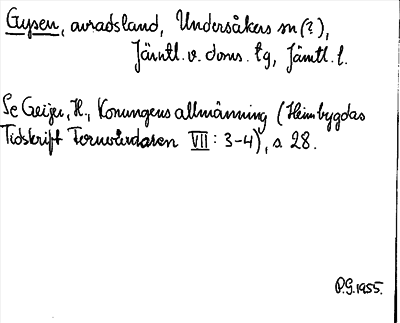 Gysen, avradsland, Undersåkers sn (?),
Jämtl. v. doms. tg, Jämtl. l.
Se Geijer, H., Konungens allmänning (Heimbygdas
Tidskrift Fornvårdaren VII: 3-4), s 28.
P.G. 1955.